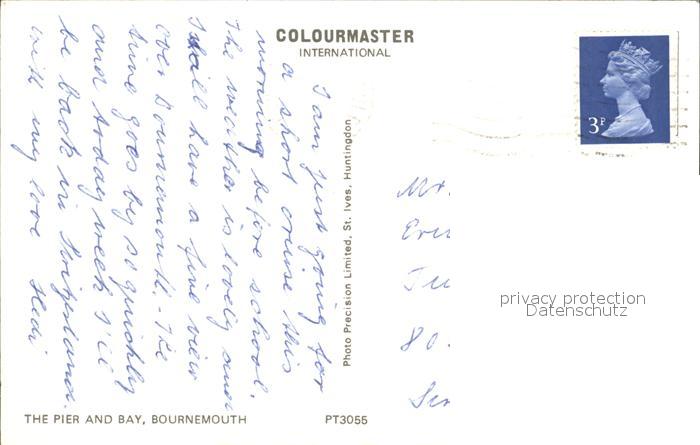 COLOURMASTER
INTERNATIONAL
I am just going for
a short cruise this
morning before school.
The weather is lovely and
I shall have a fine view
over Bournemouth. - The
time goes by so quickly
and today week I'll
be back in Switzerland.
with my love Hedi
Photo Precision Limited, St. Ives, Huntingdon
3P
Mr.
80.
privacy protection
Datenschutz
THE PIER AND BAY, BOURNEMOUTH
PT3055